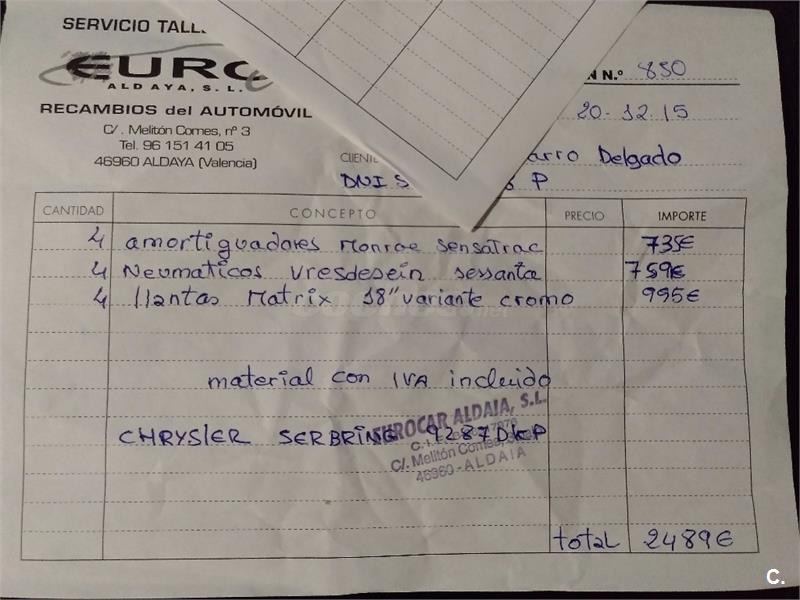 SERVICIO TALL
EURO
ALDAYA, S. L.
RECAMBIOS del AUTOMÓVIL
C/. Melitón Comes, nº 3
Tel. 96 151 41 05
46960 ALDAYA (Valencia)
N N.º 850
20-12.15
CLIENTE arro Delgado
DNI S P
CANTIDAD CONCEPTO PRECIO IMPORTE
4 amortiguadores Monroe sensatrac 735€
4 Neumaticos vresdesein sessanta 759€
4 llantas Matrix 18" variante cromo 995€
material con IVA incluido
CHRYSlER SERBRING 9287DKP
EUROCAR ALDAIA, S.L.
C/. Melitón Comes,
46960 - ALDAIA
total 2489€
C.